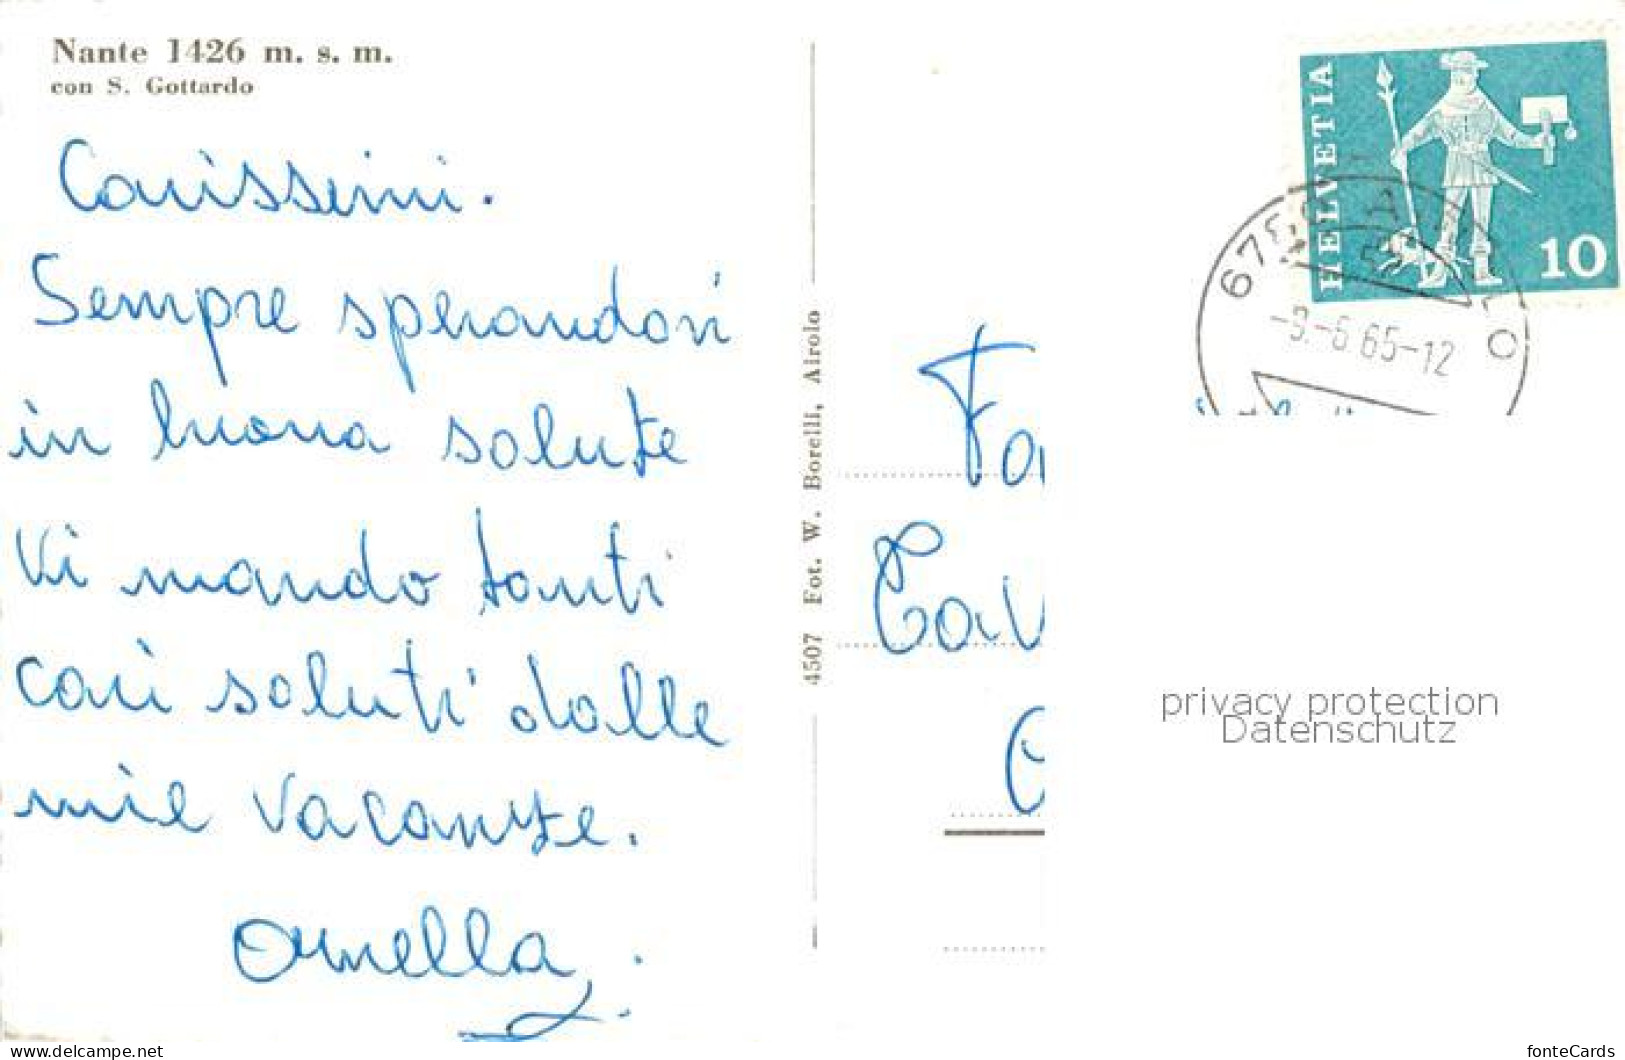 Nante 1426 m. s. m.
con S. Gottardo
Carissimi.
Sempre sperandovi
in buona salute
Vi mando tanti
cari saluti dalle
mie vacanze.
Ornella
4507 Fot. W. Borelli, Airolo
HELVETIA
10
-9.-6 65-12
privacy protection
Datenschutz
https://www.delcampe.net
fonteCards